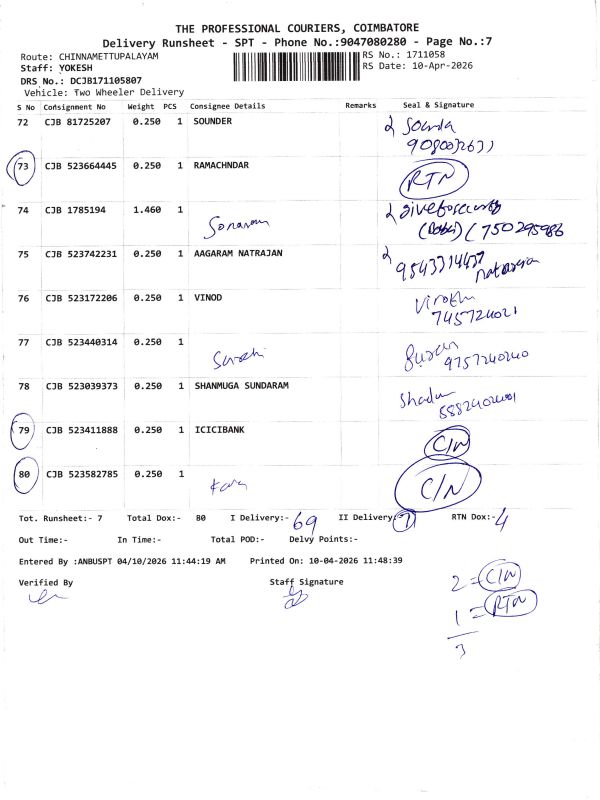 THE PROFESSIONAL COURIERS, COIMBATORE
Delivery Runsheet - SPT - Phone No.:9047080280 - Page No.:7
Route: CHINNAMETTUPALAYAM
RS No.: 1711058
Staff: YOKESH
RS Date: 10-Apr-2026
DRS No.: DCJB171105807
Vehicle: Two Wheeler Delivery
S No Consignment No Weight PCS Consignee Details Remarks Seal & Signature
72 CJB 81725207 0.250 1 SOUNDER
73 CJB 523664445 0.250 1 RAMACHNDAR RTN
74 CJB 1785194 1.460 1
75 CJB 523742231 0.250 1 AAGARAM NATRAJAN
76 CJB 523172206 0.250 1 VINOD
745724021
77 CJB 523440314 0.250 1
9757240240
78 CJB 523039373 0.250 1 SHANMUGA SUNDARAM
79 CJB 523411888 0.250 1 ICICIBANK C/N
80 CJB 523582785 0.250 1 C/N
Tot. Runsheet:- 7 Total Dox:- 80 I Delivery:- 69 II Delivery:- 7 RTN Dox:- 4
Out Time:- In Time:- Total POD:- Delvy Points:-
Entered By :ANBUSPT 04/10/2026 11:44:19 AM Printed On: 10-04-2026 11:48:39
Verified By Staff Signature
2 = C/N
1 = RTN
3